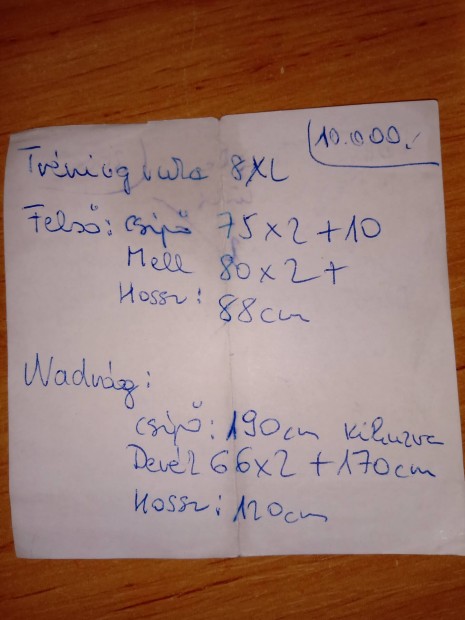 10.000,-
Tréning ruha 8XL
Felső: csípő 75x2+10
Mell 80x2+
Hossz: 88cm
Nadrág:
csípő: 190cm kihuzva
Derék 66x2+170cm
Hossz: 120cm